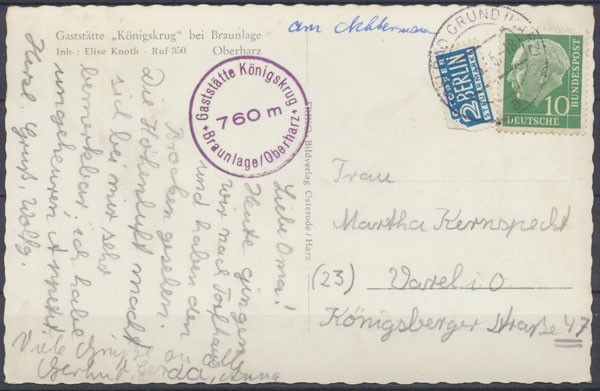 Gaststätte „Königskrug" bei Braunlage
Inh.: Elise Knoth - Ruf 350 Oberharz
am Achtermann
Gaststätte Königskrug
760 m
Braunlage/Oberharz
BAD GRUND (HARZ)
NOTOPFER
2 BERLIN
STEUERMARKE
10
DEUTSCHE
BUNDESPOST
Bildverlag Osterode/Harz
Liebe Oma!
Heute gingen
wir nach Torfhaus
und haben den
Brocken gesehen.
Die Höhenluft macht
sich bei mir sehr
bemerkbar, ich habe
ungeheuren Appetit.
Herzl. Gruß, Wolfg.
Viele Grüße an
Frau
Martha Kernspecht
(23) Varel i. O.
Königsberger Straße 47